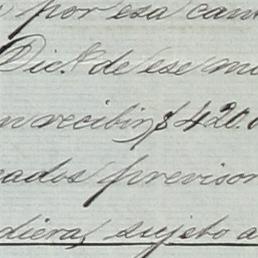 por esa can
Dic.e de ese m
n recibir $ 420.
ados previsor
diera, sujeto a